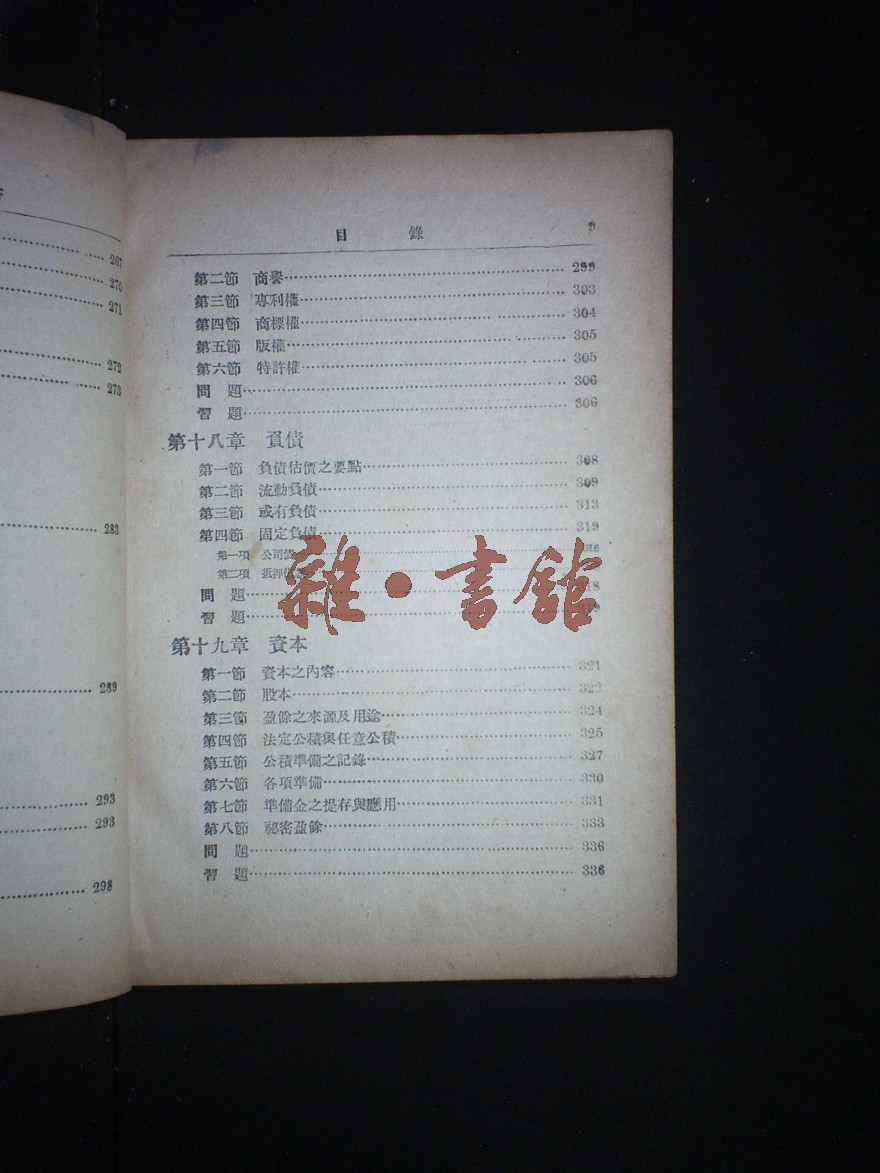 267
270
271
272
273
283
289
293
293
298
目 錄 9
第二節 商譽 299
第三節 專利權 303
第四節 商標權 304
第五節 版權 305
第六節 特許權 305
問 題 306
習 題 306
第十八章 負債
第一節 負債估價之要點 308
第二節 流動負債 309
第三節 或有負債 313
第四節 固定負債
第一項 公司債
第二項 抵押
問 題
習 題
雜·書館
第十九章 資本
第一節 資本之內容 321
第二節 股本 322
第三節 盈餘之來源及用途 324
第四節 法定公積與任意公積 325
第五節 公積準備之記錄 327
第六節 各項準備 330
第七節 準備金之提存與應用 331
第八節 祕密盈餘 333
問 題 336
習 題 336